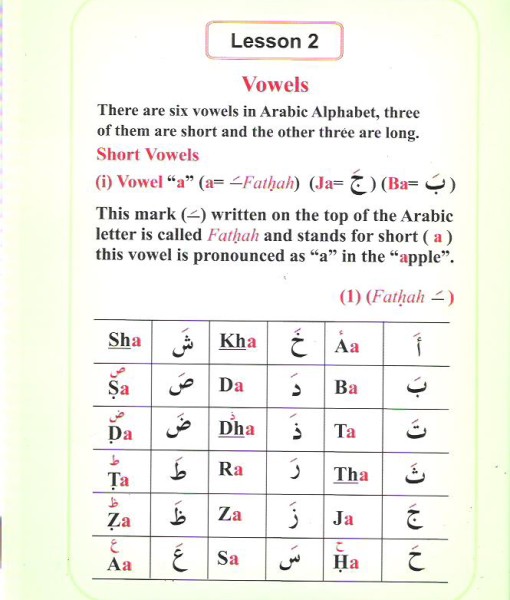 Lesson 2
Vowels
There are six vowels in Arabic Alphabet, three
of them are short and the other three are long.
Short Vowels
(i) Vowel “a” (a= ـَ Fatḥah) (Ja= جَ ) (Ba= بَ )
This mark (ـَ) written on the top of the Arabic
letter is called Fatḥah and stands for short ( a )
this vowel is pronounced as “a” in the “apple”.
(1) (Fatḥah ـَ )
Sha شَ Kha خَ Áa أَ
ص
Ṣa صَ Da دَ Ba بَ
ض
Ḍa ضَ Dha ذَ Ta تَ
ط
Ṭa طَ Ra رَ Tha ثَ
ظ
Ẓa ظَ Za زَ Ja جَ
ع ح
Aa عَ Sa سَ Ḥa حَ